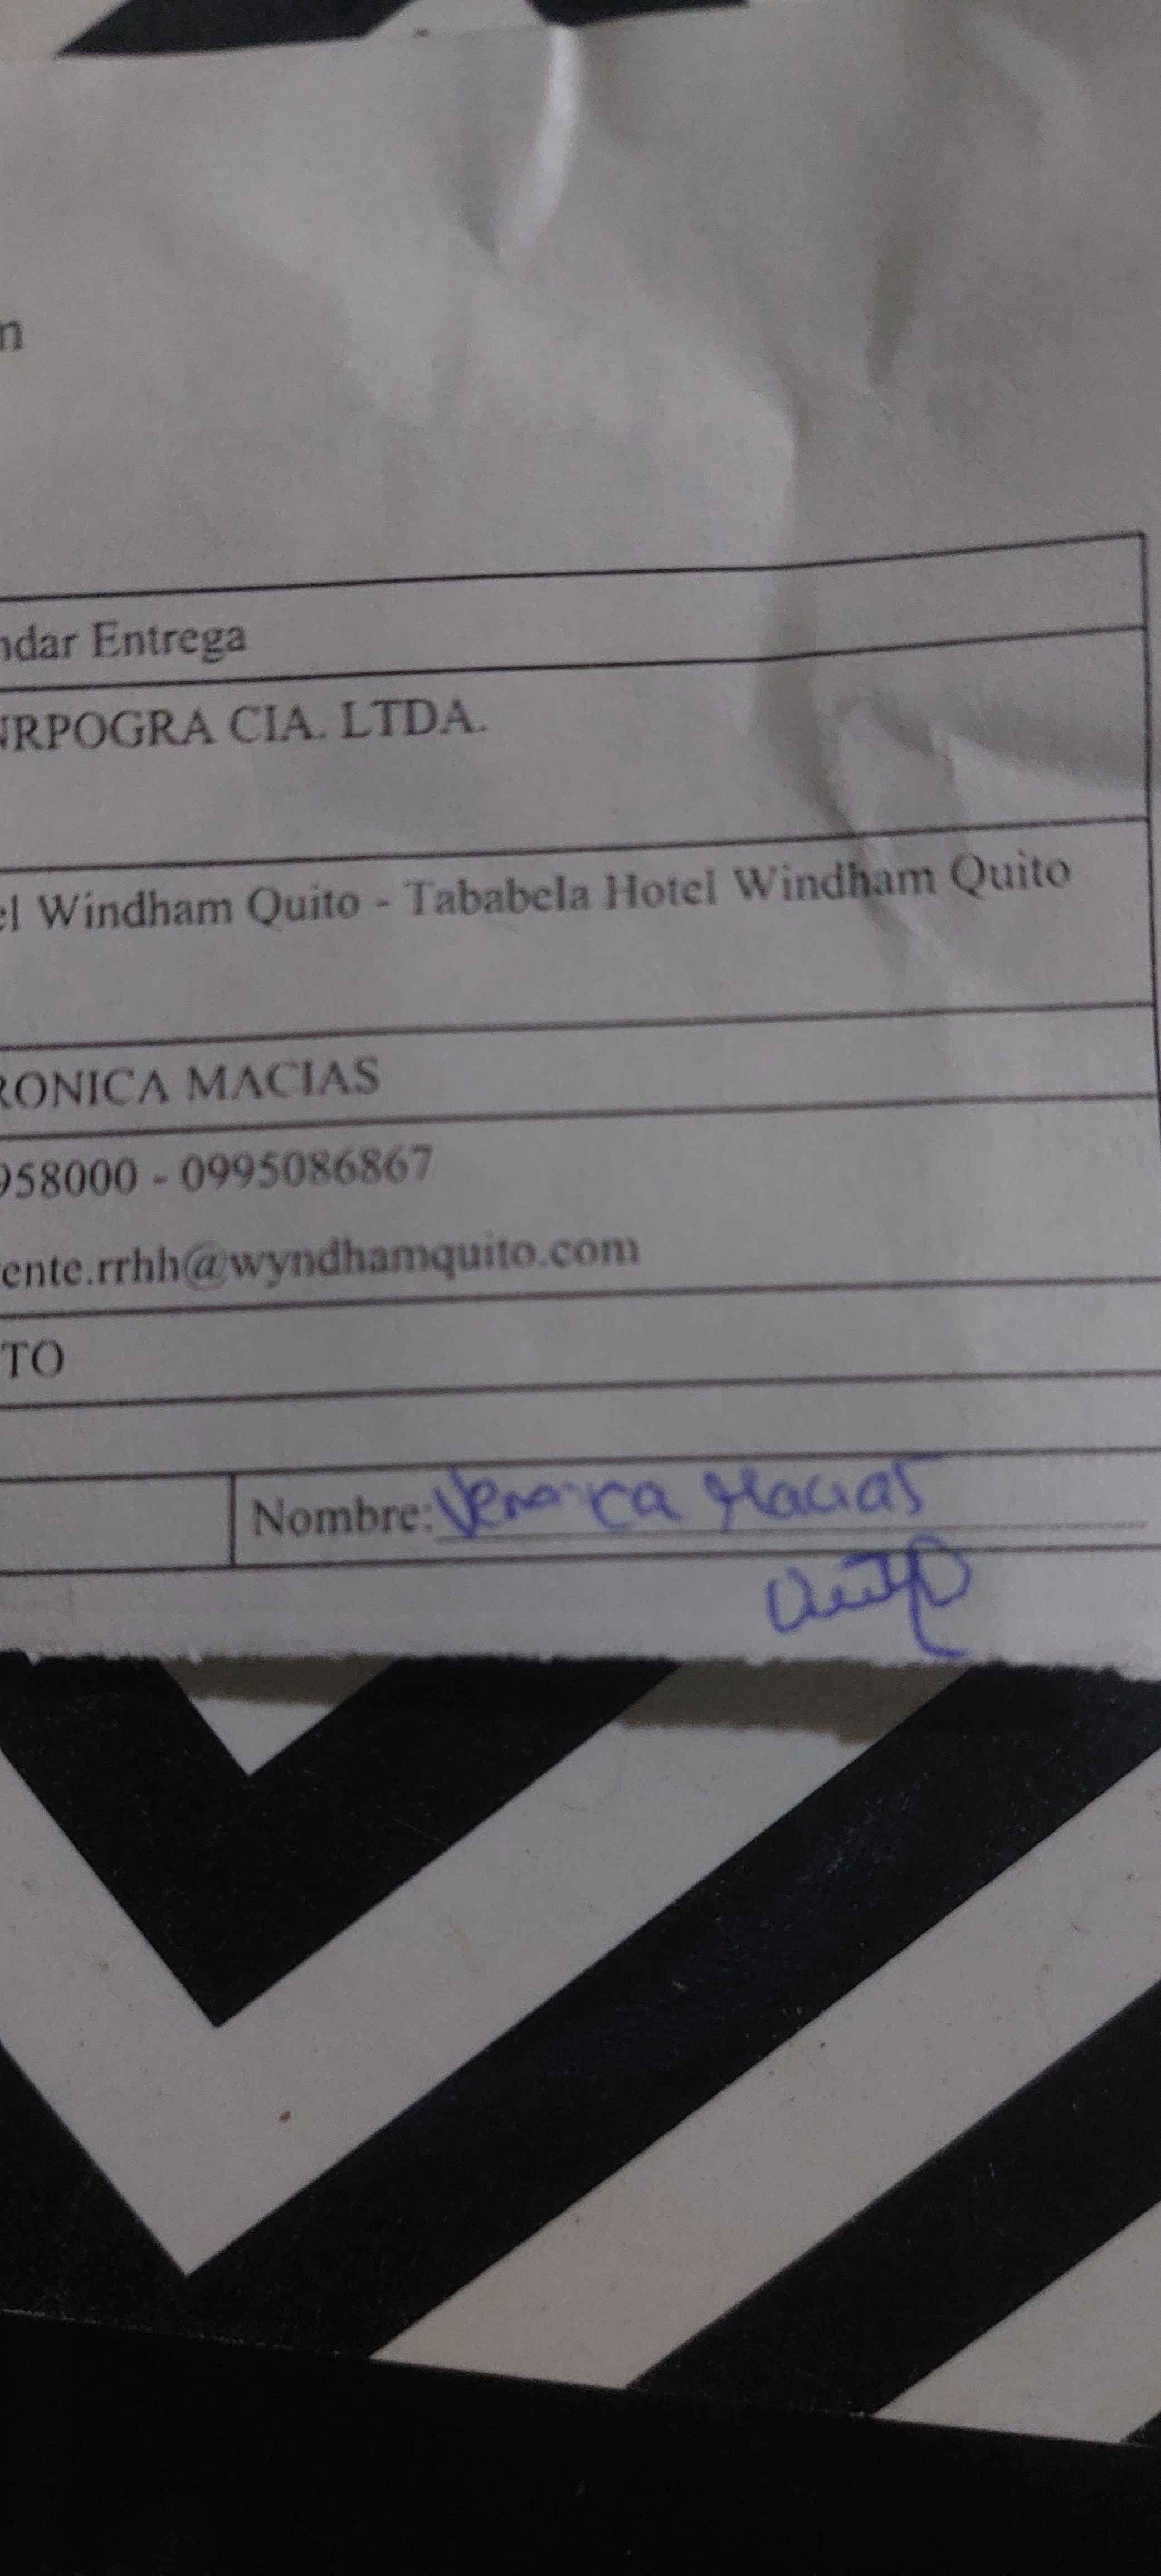 n
ndar Entrega
NRPOGRA CIA. LTDA.
el Windham Quito - Tababela Hotel Windham Quito
RONICA MACIAS
958000 - 0995086867
ente.rrhh@wyndhamquito.com
TO
Nombre: Veronica Macias